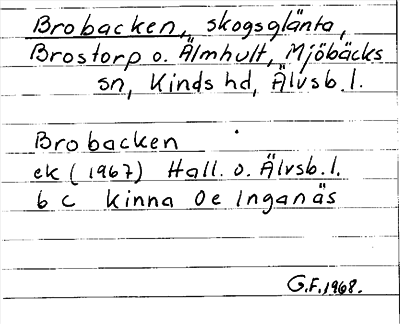 Brobacken, skogsglänta,
Brostorp o. Älmhult, Mjöbäcks
sn, Kinds hd, Älvsb. l.
Brobacken
ek (1967) Hall. o. Älvsb. l.
6 c Kinna 0 e Inganäs
G.F. 1968.